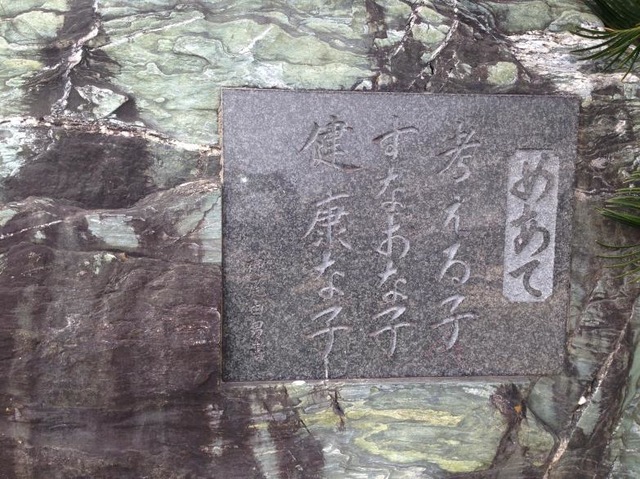 めあて
考える子
すなおな子
健康な子